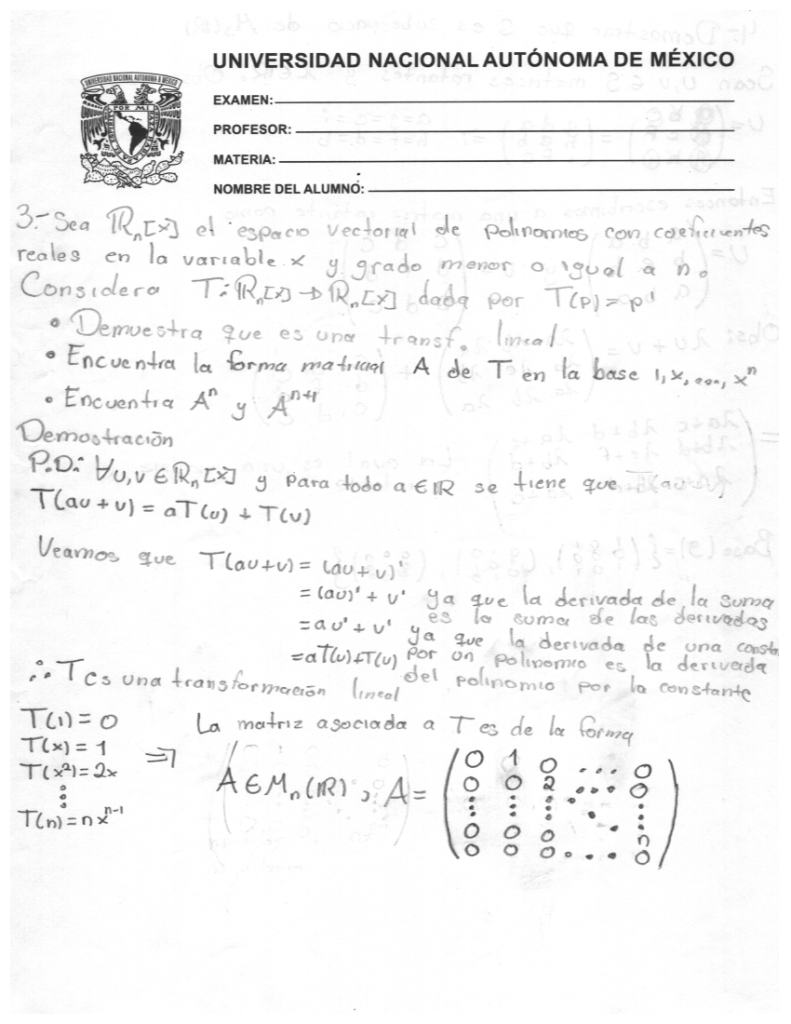 UNIVERSIDAD NACIONAL AUTÓNOMA DE MÉXICO
EXAMEN:
PROFESOR:
MATERIA:
NOMBRE DEL ALUMNO:
3.- Sea ℝₙ[x] el espacio vectorial de polinomios con coeficientes
reales en la variable x y grado menor o igual a n.
Considera T: ℝₙ[x] → ℝₙ[x] dada por T(p) = p'
• Demuestra que es una transf. lineal
• Encuentra la forma matricial A de T en la base 1, x, ..., xⁿ
• Encuentra Aⁿ y Aⁿ⁺¹
Demostración
P.D: ∀u,v ∈ ℝₙ[x] y para todo a ∈ ℝ se tiene que
T(au + v) = aT(u) + T(v)
Veamos que T(au+v) = (au+v)'
= (au)' + v' ya que la derivada de la suma es la suma de las derivadas
= au' + v' ya que la derivada de una const. por un polinomio es la derivada del polinomio por la constante
= aT(u)+T(v)
∴ T es una transformación lineal
T(1) = 0
T(x) = 1
T(x²) = 2x
⋮
T(n) = nxⁿ⁻¹
⇒ La matriz asociada a T es de la forma
A ∈ Mₙ(ℝ), A =
0 1 0 ... 0
0 0 2 ... 0
⋮ ⋮ ⋮ ⋱ ⋮
0 0 0 n
0 0 0 ... 0